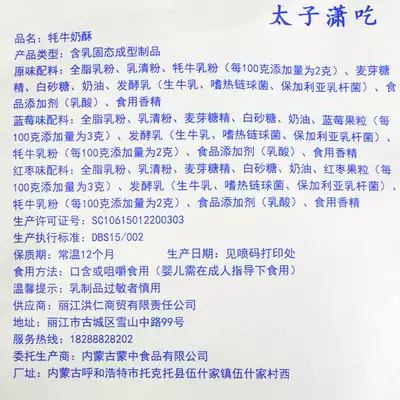 太子潇吃
品名：牦牛奶酥
产品类型：含乳固态成型制品
原味配料：全脂乳粉、乳清粉、牦牛乳粉（每100克添加量为2克）、麦芽糖
精、白砂糖、奶油、发酵乳（生牛乳、嗜热链球菌、保加利亚乳杆菌）、食
品添加剂（乳酸）、食用香精
蓝莓味配料：全脂乳粉、乳清粉、麦芽糊精、白砂糖、奶油、蓝莓果粒（每
100克添加量为3克）、发酵乳（生牛乳、嗜热链球菌、保加利亚乳杆菌）、
牦牛乳粉（每100克添加量为2克）、食品添加剂（乳酸）、食用香精
红枣味配料：全脂乳粉、乳清粉、麦芽糊精、白砂糖、奶油、红枣果粒（每
100克添加量为3克）、发酵乳（生牛乳、嗜热链球菌、保加利亚乳杆菌）、
牦牛乳粉（每100克添加量为2克）、食品添加剂（乳酸）、食用香精
生产许可证号：SC10615012200303
生产执行标准：DBS15/002
保质期：常温12个月 生产日期：见喷码打印处
食用方法：口含或咀嚼食用（婴儿需在成人指导下食用）
温馨提示：乳制品过敏者慎用
供应商：丽江洪仁商贸有限责任公司
地址：丽江市古城区雪山中路99号
服务热线：18288828202
委托生产商：内蒙古蒙中食品有限公司
厂址：内蒙古呼和浩特市托克托县伍什家镇伍什家村西